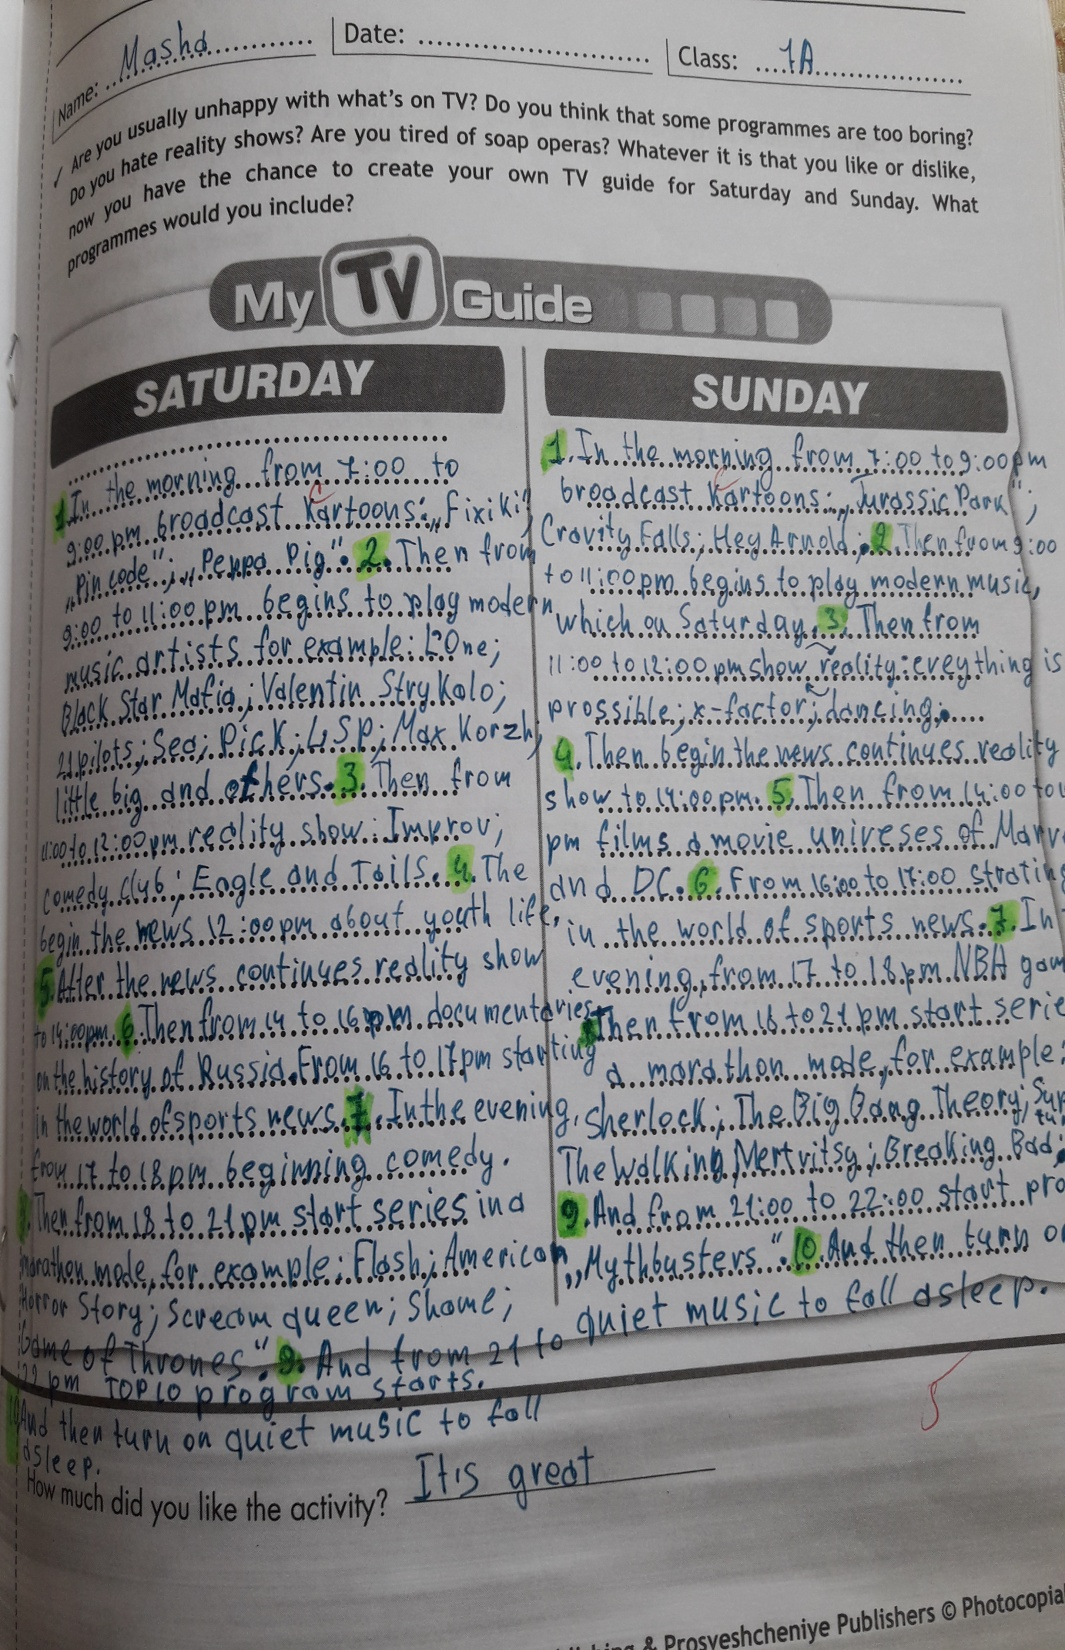 Name: Masha
Date:
Class: 7A
Are you usually unhappy with what's on TV? Do you think that some programmes are too boring?
Do you hate reality shows? Are you tired of soap operas? Whatever it is that you like or dislike,
now you have the chance to create your own TV guide for Saturday and Sunday. What
programmes would you include?
My TV Guide
SATURDAY
1. In the morning from 7:00 to
9:00 pm broadcast Kartoons: „Fixiki";
c
„Pin code"; „Peppa Pig". 2. Then from
9:00 to 11:00 pm begins to play modern
music artists for example: L'One;
Black Star Mafia; Valentin Strykalo;
21 pilots; Sea; Pick; LSP; Max Korzh;
little big and others. 3. Then from
11:00 to 12:00 pm reality show: Improv;
comedy club; Eagle and Tails. 4. The
begin the news 12:00 pm about youth life.
5. After the news continues reality show
to 14:00 pm. 6. Then from 14 to 16 pm documentaries
on the history of Russia. From 16 to 17 pm starting
in the world of sports news. 7. In the evening,
from 17 to 18 pm beginning comedy.
8. Then from 18 to 21 pm start series in a
marathon mode, for example: Flash; American
Horror Story; Scream queen; Shame;
Game of Thrones". 9. And from 21 to
22 pm TOP 10 program starts.
10 And then turn on quiet music to fall
asleep.
SUNDAY
1. In the morning from 7:00 to 9:00 pm
broadcast Kartoons: „Jurassic Park";
c
Cravity Falls; Hey Arnold; 2. Then from 9:00
to 11:00 pm begins to play modern music,
which on Saturday. 3. Then from
11:00 to 12:00 pm show reality: eveything is
prossible; x-factor; dancing;
4. Then begin the news continues reality
show to 14:00 pm. 5. Then from 14:00 to
pm films a movie univeses of Marv
and DC. 6. From 16:00 to 17:00 strating
in the world of sports news. 7. In
evening, from 17 to 18 pm NBA gam
Then from 18 to 21 pm start serie
a marathon mode, for example:
Sherlock; The Big Bang Theory; Sup
The Walking Mertvitsy; Breaking Bad;
9. And from 21:00 to 22:00 start pro
„Mythbusters". 10. And then turn on
quiet music to fall asleep.
5
How much did you like the activity? It is great
& Prosveshcheniye Publishers © Photocopia